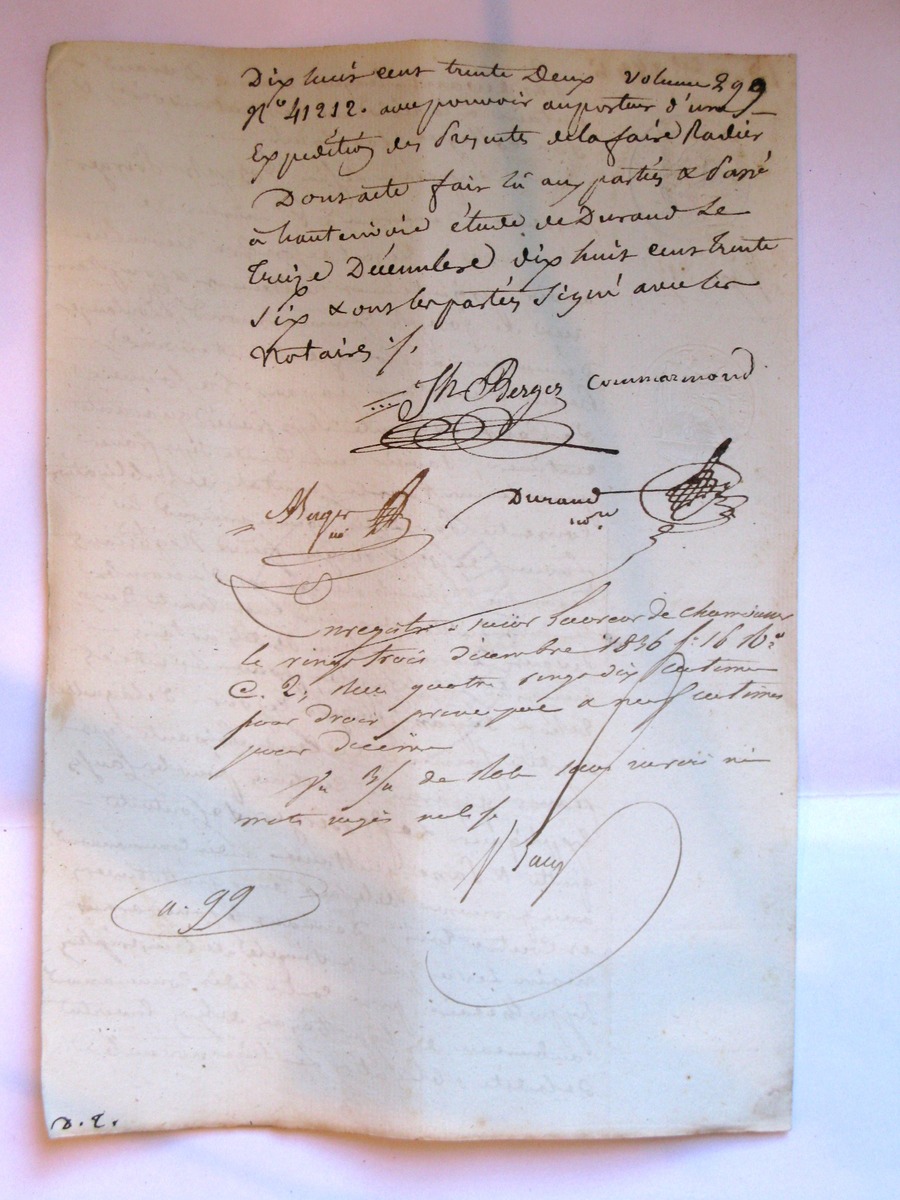 Dix huit cent trente Deux volume 299
N.o 41212. avec pouvoir au porteur d'une
Expédition des Presentes de la faire Radier
Dont acte fait lû aux parties & Passé
à hauterivoire étude de Durand Le
treize Décembre dix huit cent trente
six & ont les parties Signé avec les
Notaires ./.
Jh Berger Commarmond
Berger
no.
Durand
no.re
Enregistré à Saint Laurent de Chamousset
le vingt trois décembre 1836 f.o 16 R.o
C. 2; reçu quatre vingt dix centimes
pour droit principal & neuf centimes
pour décime
de Role sans renvoi ni
mots rayés
a. 99
d. 2.